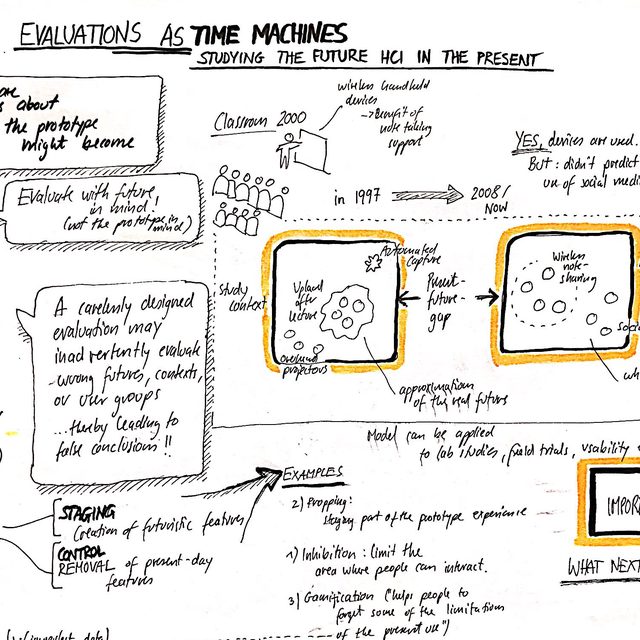 EVALUATIONS AS TIME MACHINES
STUDYING THE FUTURE HCI IN THE PRESENT
about
the prototype
might become
Evaluate with future
in mind,
(not the prototype in
mind)
A carefully designed
evaluation may
inadvertently evaluate
wrong futures, contexts,
or user groups
...thereby leading to
false conclusions!!
Classroom 2000
wireless handheld
devices
→ Benefit of
note taking
support
in 1997
2008/
NOW
YES, devices are used.
But: didn't predict
use of social
Study
context
Automated
Capture
Upload
after
lecture
overhead
projectors
Present-
future-
gap
approximations
of the real future
Wireless
note-
sharing
Model can be applied
to lab studies, field trials, usability
STAGING
Creation of futuristic features
CONTROL
REMOVAL of present-day
features
EXAMPLES
2) Propping:
staging part of the prototype experience
1) Inhibition: limit the
area where people can interact.
3) Gamification ("helps people to
forget some of the limitations
of the present use")
WHAT NEXT